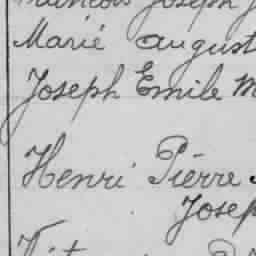 François Joseph
Marié august
Joseph Emile M
Henri Piérre
Josep